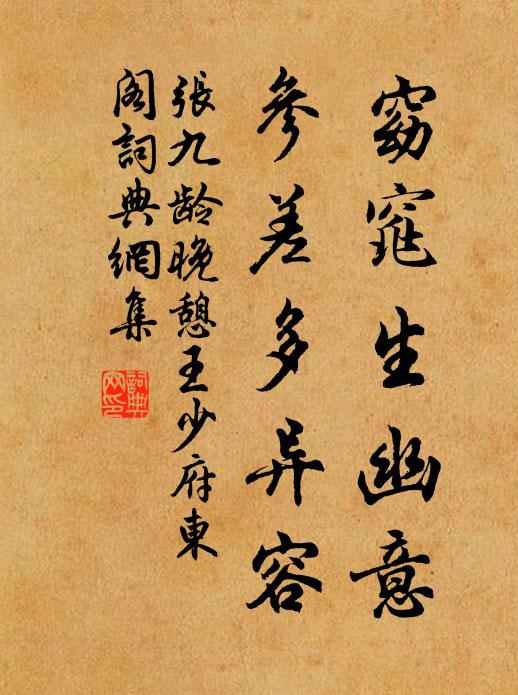 窈窕生幽意
參差多异容
張九齡晚憩王少府東
閣詞典網集
詞典
网印